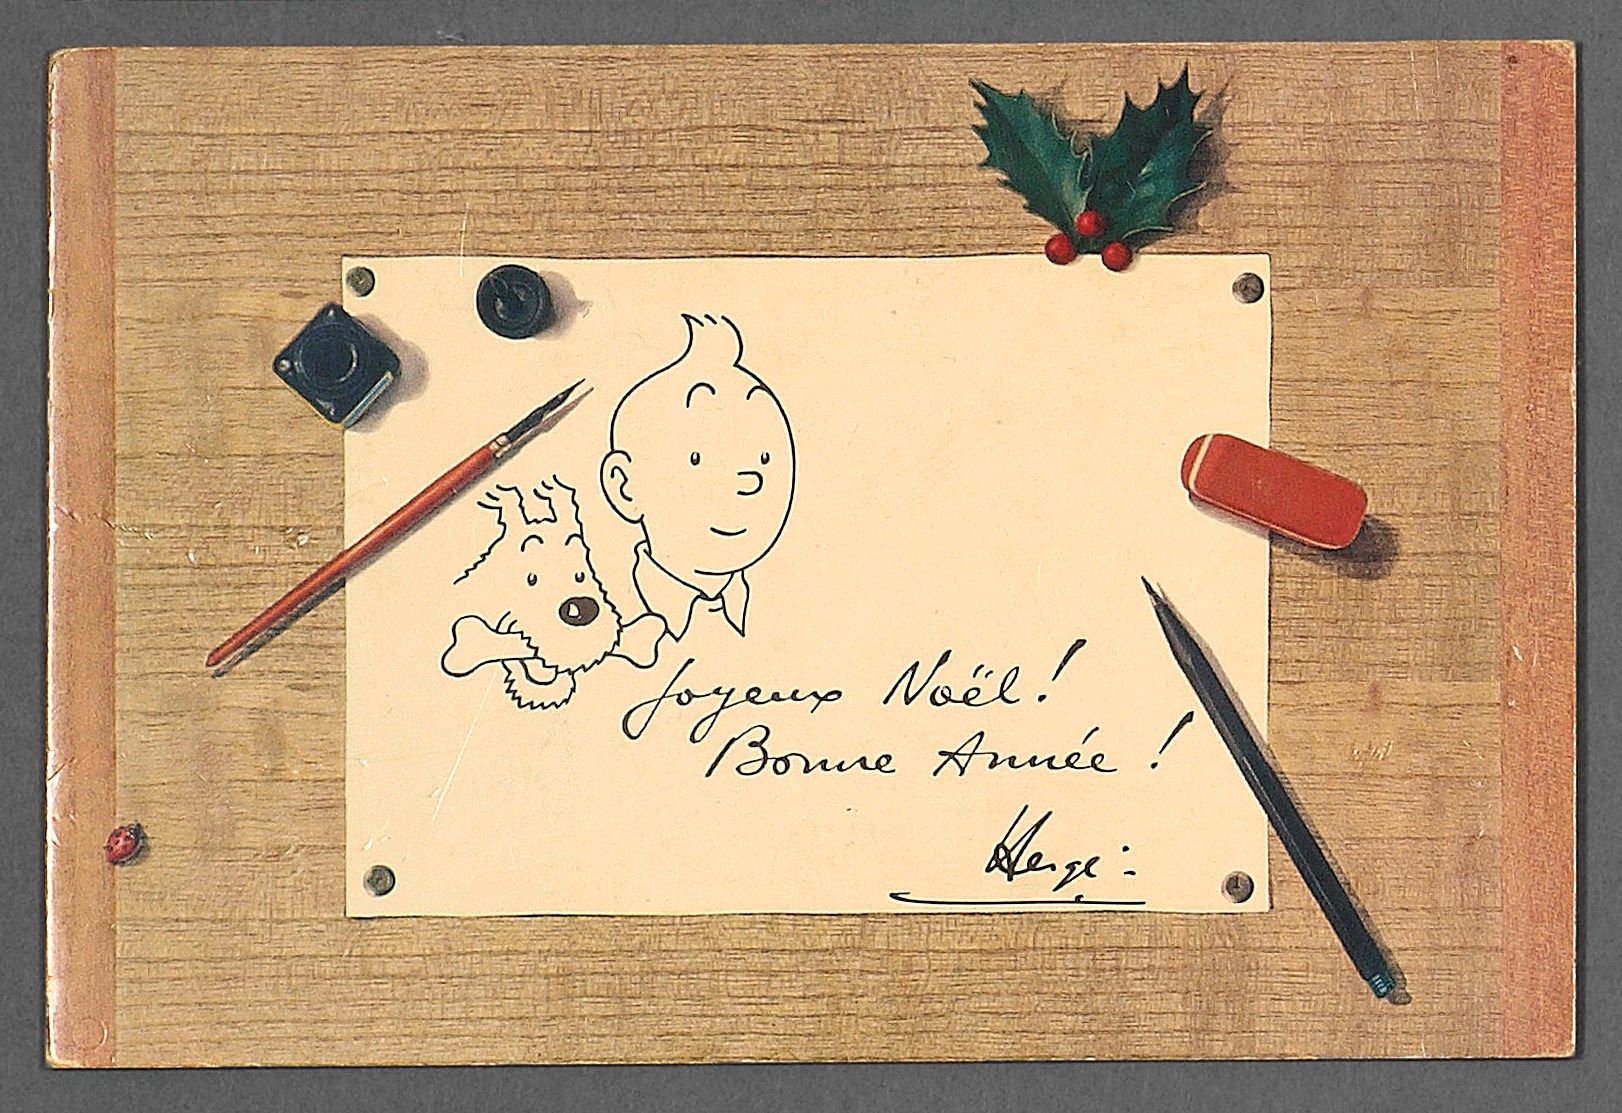 Joyeux Noël !
Bonne Année !
Hergé